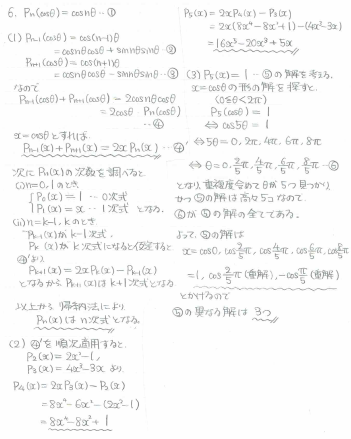 6. Pn(cosθ) = cosnθ …①
(1) Pn-1(cosθ) = cos(n-1)θ
= cosnθcosθ + sinnθsinθ …②
Pn+1(cosθ) = cos(n+1)θ
= cosnθcosθ - sinnθsinθ …③
なので
Pn-1(cosθ) + Pn+1(cosθ) = 2cosnθcosθ
= 2cosθ・Pn(cosθ)
…④
x = cosθとすれば、
Pn-1(x) + Pn+1(x) = 2xPn(x) …④'
次に Pn(x)の次数を調べると
(i) n=0,1のとき,
P0(x) = 1 … 0次式
P1(x) = x … 1次式 となる.
(ii) n=k-1, kのとき,
Pk-1(x)がk-1次式,
Pk(x)がk次式になると仮定すると
④'より,
Pk+1(x) = 2xPk(x) - Pk-1(x)
となるから Pk+1(x)はk+1次式となる
以上から 帰納法により
Pn(x)は n次式となる.
(2) ④'を順次適用すると,
P2(x) = 2x²-1,
P3(x) = 4x³-3x より
P4(x) = 2xP3(x) - P2(x)
= 8x⁴ - 6x² - (2x²-1)
= 8x⁴ - 8x² + 1
P5(x) = 2xP4(x) - P3(x)
= 2x(8x⁴-8x²+1) - (4x³-3x)
= 16x⁵ - 20x³ + 5x
(3) P5(x) = 1 …⑤の解を考える.
x = cosθの形の解を探すと,
(0≦θ<2π)
P5(cosθ) = 1
⇔ cos5θ = 1
⇔ 5θ = 0, 2π, 4π, 6π, 8π
⇔ θ = 0, 2/5π, 4/5π, 6/5π, 8/5π …⑥
となり, 重複度含めてθが5つ見つかり,
かつ⑤の解は高々5つなので
⑥が⑤の解の全てである.
よって, ⑤の解は
x = cos0, cos2/5π, cos4/5π, cos6/5π, cos8/5π
= 1, cos2/5π (重解), -cosπ/5 (重解)
とかけるので
⑤の異なる解は 3つ